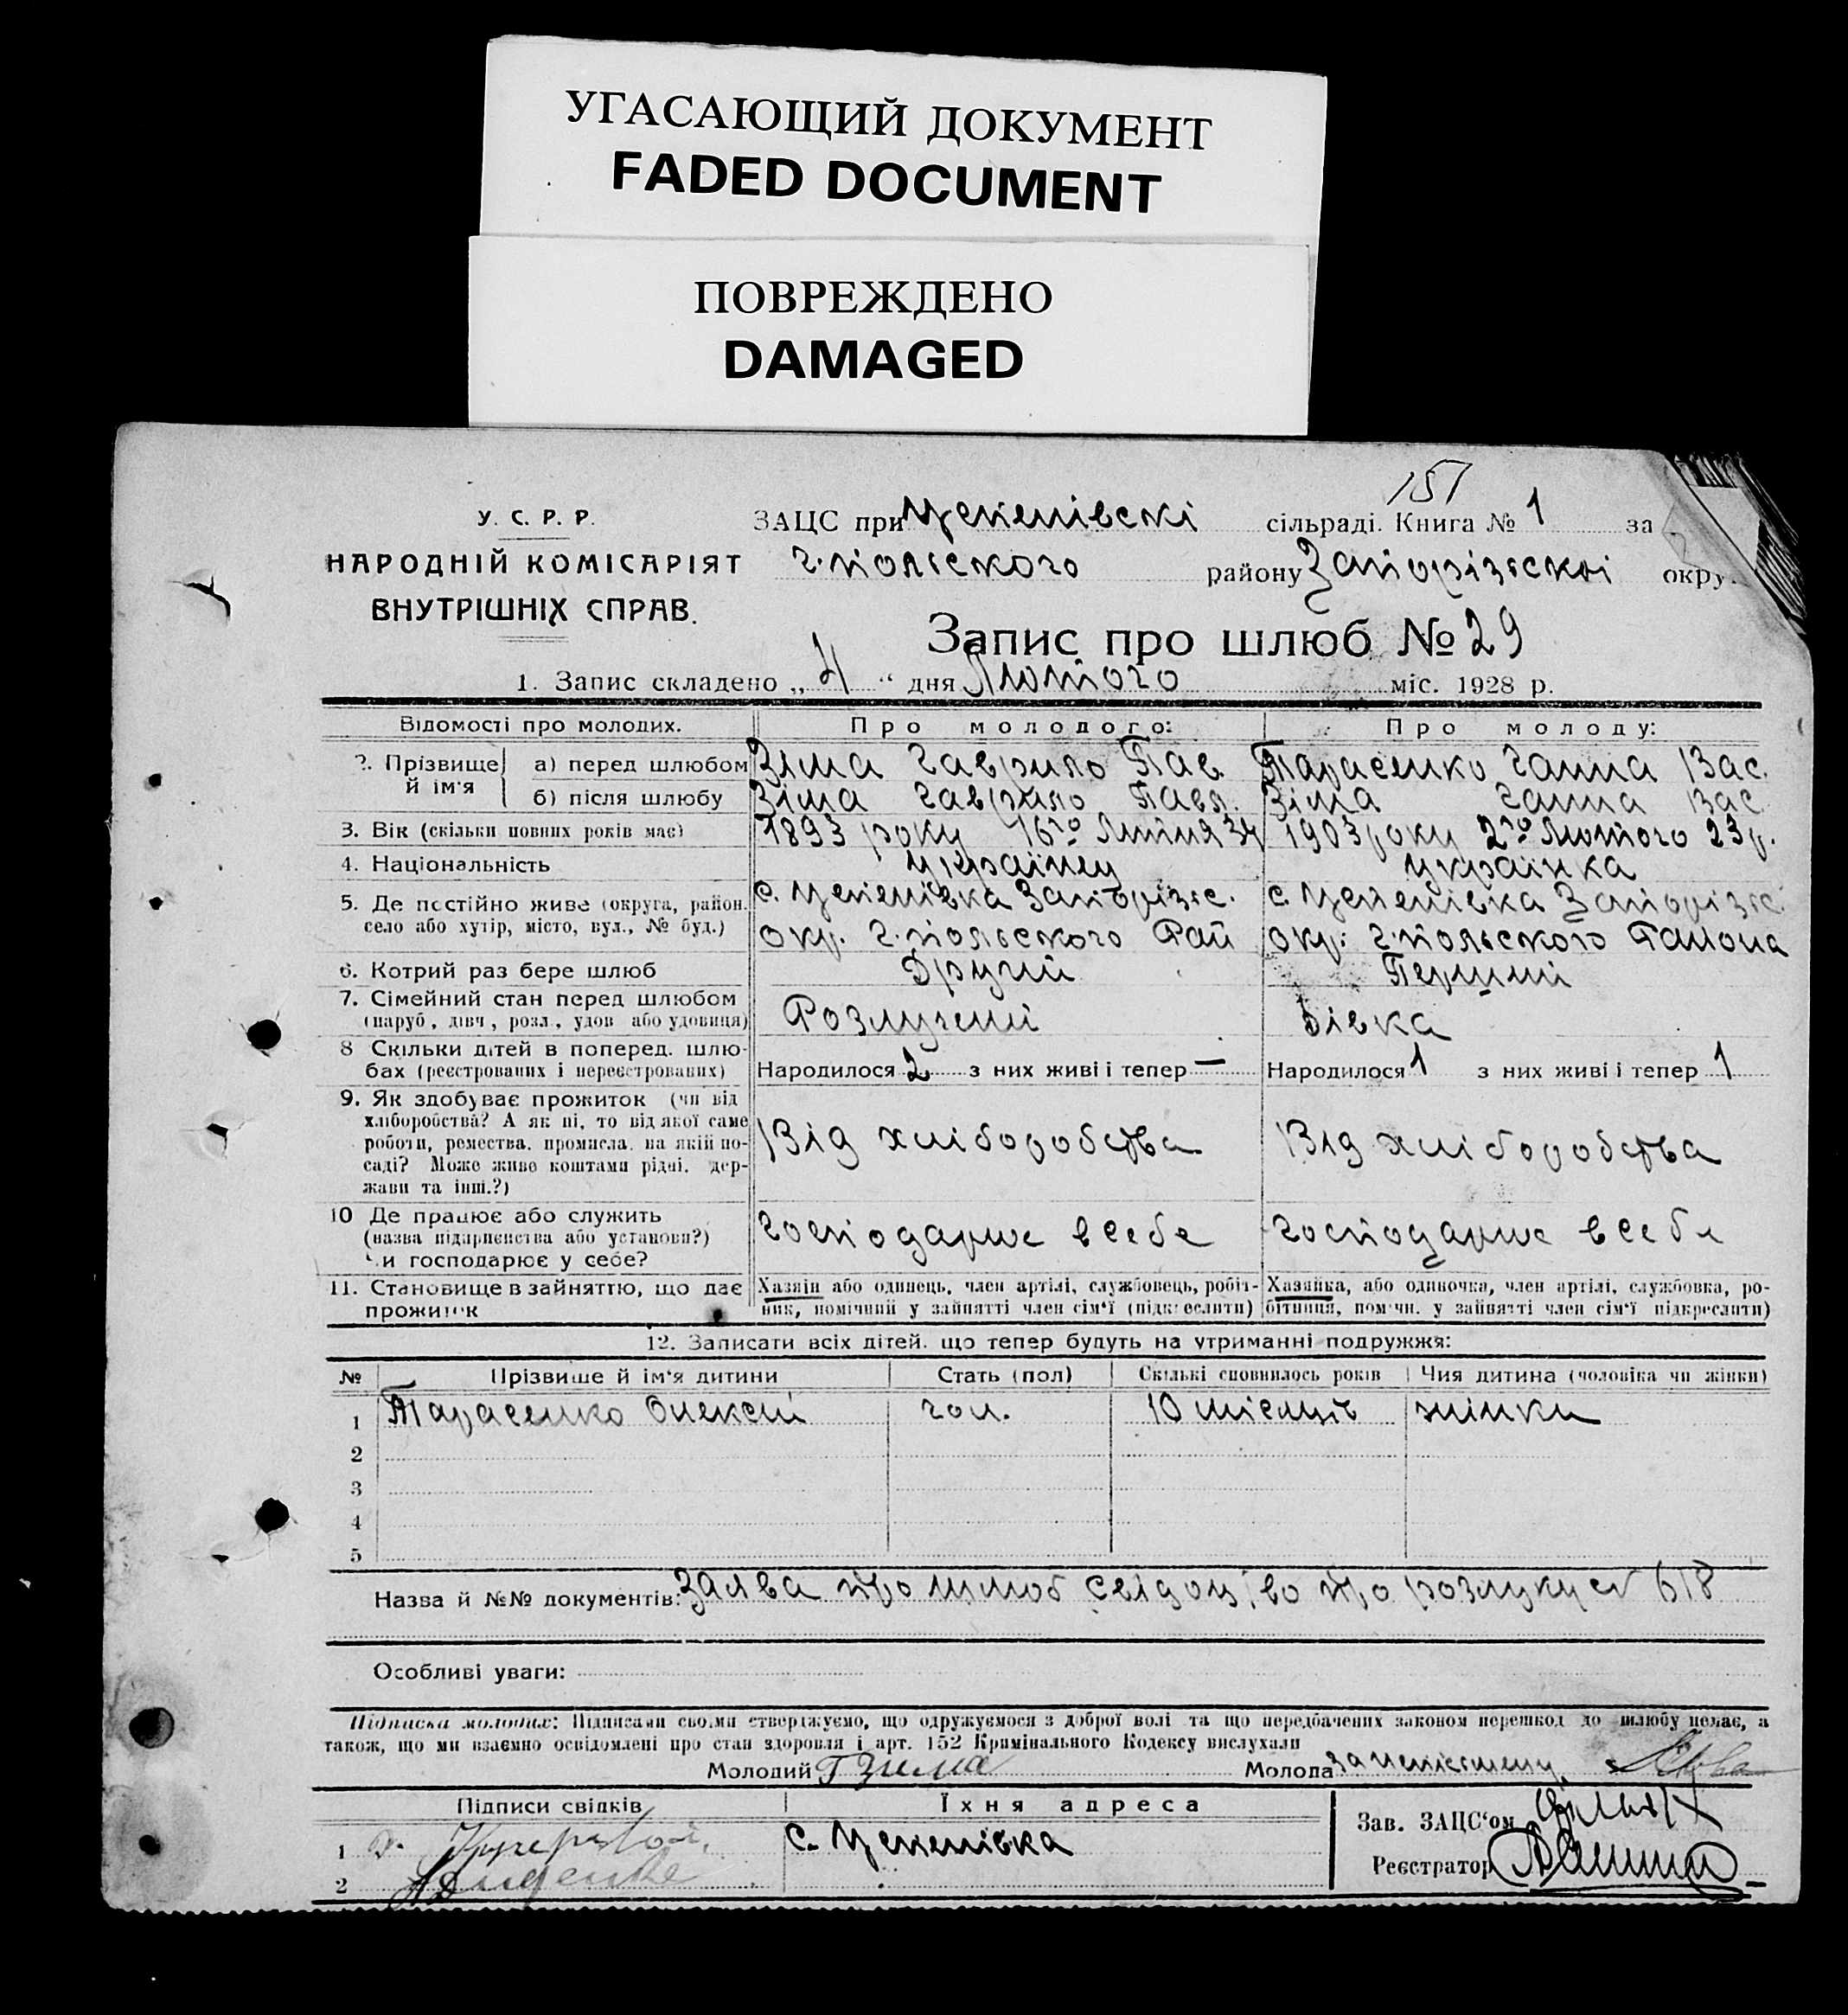 УГАСАЮЩИЙ ДОКУМЕНТ
FADED DOCUMENT
ПОВРЕЖДЕНО
DAMAGED
151
У. С. Р. Р.
НАРОДНІЙ КОМІСАРІЯТ
ВНУТРІШНІХ СПРАВ.
ЗАЦС при Цепенівскі сільраді. Книга № 1 за
г.польского району Запорізьскої окру
Запис про шлюб № 29
1. Запис складено „ 4 “ дня Лютого міс. 1928 р.
Відомості про молодих. Про молодого: Про молоду:
2. Прізвище й ім'я
а) перед шлюбом Зіма Гаврило Пав. Тарасенко Ганна Вас.
б) після шлюбу Зіма Гаврило Павл. Зіма Ганна Вас
3. Вік (скільки повних років має) 1893 року 16го Липня 34 1903 року 2го Лютого 23 р.
4. Національність Українец українка
5. Де постійно живе (округа, район, село або хутір, місто, вул., № буд.)
с. Цепенівка Запорізьс. окр. г.польского Рай
с. Цепенівка Запорізьс. окр. г.польского Района
6. Котрий раз бере шлюб Другий Перший
7. Сімейний стан перед шлюбом
(паруб., дівч., розл., удов. або удовиця) Розлучений Дівка
8 Скільки дітей в поперед. шлюбах (реєстрованих і нереєстрованих)
Народилося 2 з них живі і тепер — Народилося 1 з них живі і тепер 1
9. Як здобуває прожиток (чи від
хліборобства? А як ні, то від якої саме
роботи, ремества, промисла, на якій по-
саді? Може живе коштами рідні, дер-
жави та інш.?)
Від хліборобства Від хліборобства
10 Де працює або служить
(назва підприємства або установи?)
Чи господарює у себе?
Господарює в себе Господарює в себе
11. Становище в зайняттю, що дає прожиток
Хазяїн або одинець, член артілі, службовець, робіт-
ник, помічний у зайнятті член сім'ї (підкреслити)
Хазяйка, або одиночка, член артілі, службовка, ро-
бітниця, помічн. у зайнятті член сім'ї підкреслити)
12. Записати всіх дітей, що тепер будуть на утриманні подружжя:
№ Прізвище й ім'я дитини Стать (пол) Скількі сповнилось років Чия дитина (чоловіка чи жінки)
1 Тарасенко Олексій чол. 10 місяців жінки
2
3
4
5
Назва й №№ документів: Заява про шлюб свідоц/во про розлуку № 618
Особливі уваги:
Підписка молодих: Підписами своїми стверджуємо, що одружуємося з доброї волі та що передбачених законом перешкод до шлюбу немає, а
також, що ми взаємно освідомлені про стан здоровля і арт. 152 Кримінального Кодексу вислухали
Молодий Г Зима Молода за неписьмену
Підписи свідків Їхня адреса
1 с. Цепенівка
2 Діденко
Зав. ЗАЦС'ом
Реєстратор